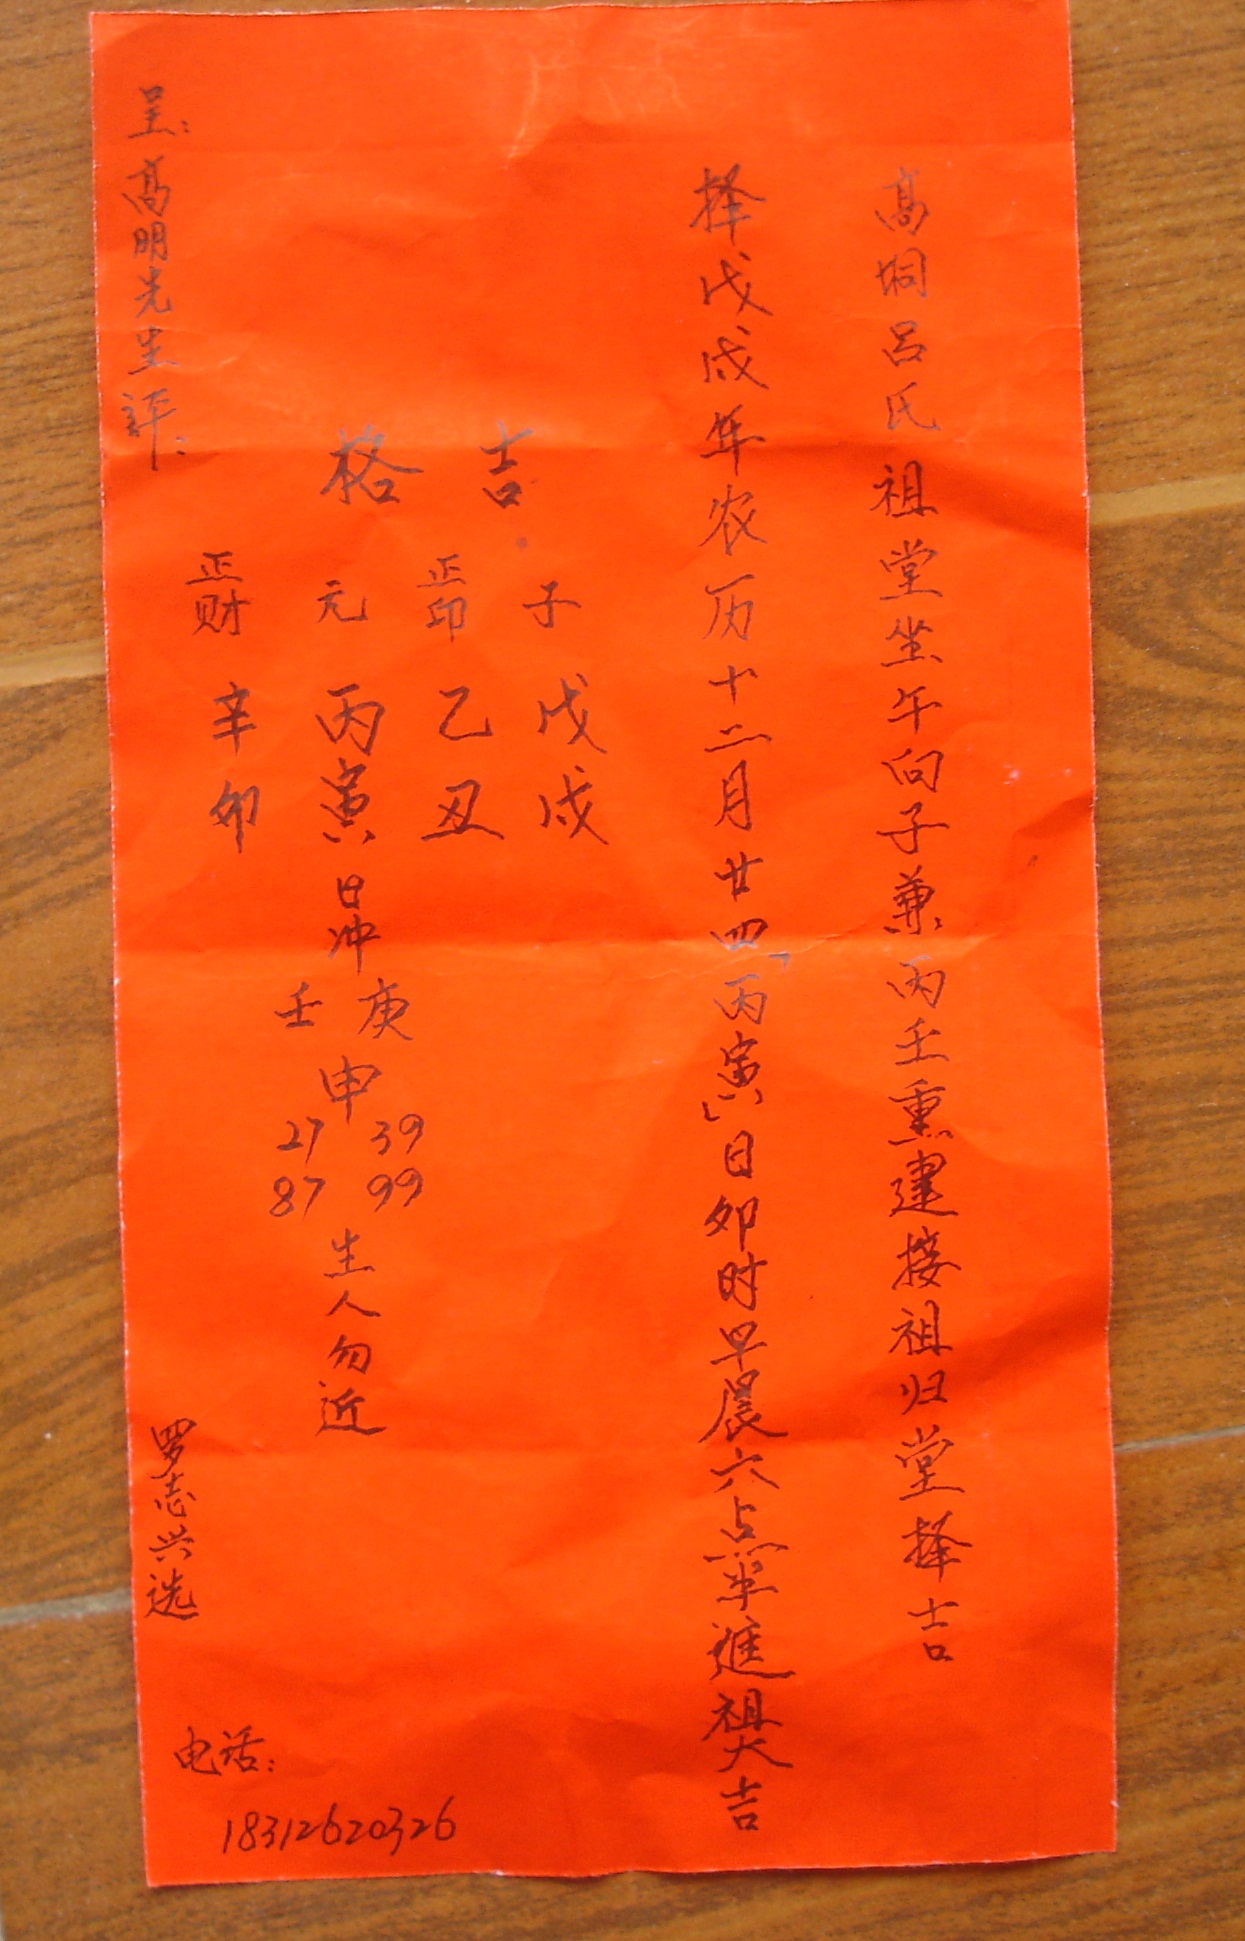 高垌吕氏祖堂坐午向子兼丙壬重建接祖归堂择吉
择戊戌年农历十二月廿四「丙寅」日卯时早晨六点半進祖大吉
吉格
子 戊戌
正印 乙丑
元 丙寅日冲庚壬申
39 27
99 87
生人勿近
正财 辛卯
呈：高明先生评：
罗志兴选
电话：
18312620326